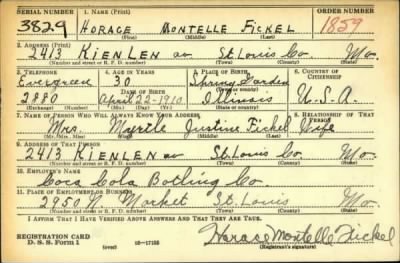 SERIAL NUMBER 1. NAME (Print) ORDER NUMBER
3829 HORACE MONTELLE FICKEL 1859
(First) (Middle) (Last)
2. ADDRESS (Print)
2413 KIENLEN av St. Louis Co Mo.
(Number and street or R. F. D. number) (Town) (County) (State)
3. TELEPHONE 4. AGE IN YEARS 5. PLACE OF BIRTH 6. COUNTRY OF CITIZENSHIP
Evergreen 30 Spring Garden
DATE OF BIRTH (Town or county)
2880 April 22-1910 Illinois U.S.A.
(Exchange) (Number) (Mo.) (Day) (Yr.) (State or country)
7. NAME OF PERSON WHO WILL ALWAYS KNOW YOUR ADDRESS 8. RELATIONSHIP OF THAT PERSON
Mrs. Myrtle Justine Fickel Wife
(Mr., Mrs., Miss) (First) (Middle) (Last)
9. ADDRESS OF THAT PERSON
2413 KIENLEN av St. Louis Co. Mo.
(Number and street or R. F. D. number) (Town) (County) (State)
10. EMPLOYER'S NAME
Coca Cola Botling Co.
11. PLACE OF EMPLOYMENT OR BUSINESS
2950 N. Market St. Louis Mo.
(Number and street or R. F. D. number) (Town) (County) (State)
I AFFIRM THAT I HAVE VERIFIED ABOVE ANSWERS AND THAT THEY ARE TRUE.
REGISTRATION CARD
D. S. S. Form 1 (over) 16-17105 Horace Montelle Fickel
(Registrant's signature)